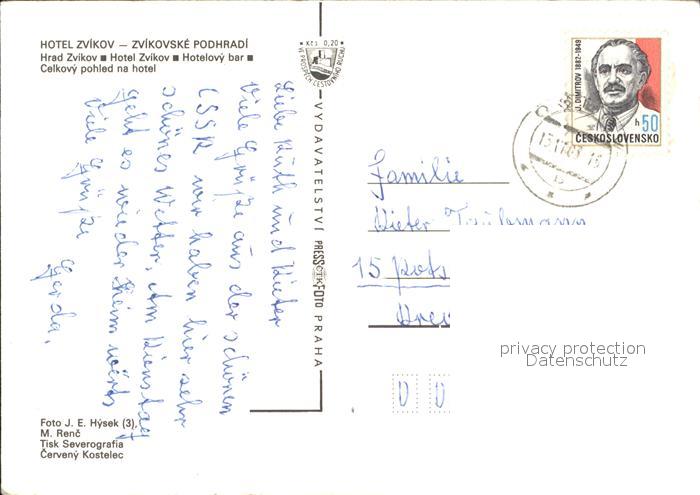 HOTEL ZVÍKOV — ZVÍKOVSKÉ PODHRADÍ
Hrad Zvíkov ■ Hotel Zvíkov ■ Hotelový bar ■
Celkový pohled na hotel
Liebe Ruth und Dieter
Viele Grüße aus der schönen
CSSR wir haben hier sehr
schönes Wetter, Am Dienstag
geht es wieder heim wärts
Viele Grüße
Gerda.
Foto J. E. Hýsek (3),
M. Renč
Tisk Severografia
Červený Kostelec
• Kčs 0,20 •
VE PROSPĚCH CESTOVNÍHO RUCHU
VYDAVATELSTVÍ PRESSFOTO PRAHA
ČTK
J. DIMITROV 1882-1949
h 50
ČESKOSLOVENSKO
Familie
Dieter
15 Pots
privacy protection
Datenschutz
D D